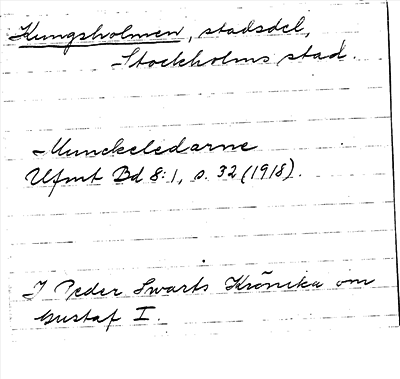 Kungsholmen, stadsdel,
Stockholms stad.
- Munckeledarne
Ufmt Bd 8:1, s. 32 (1918).
I Peder Swarts Krönika om
Gustaf I.